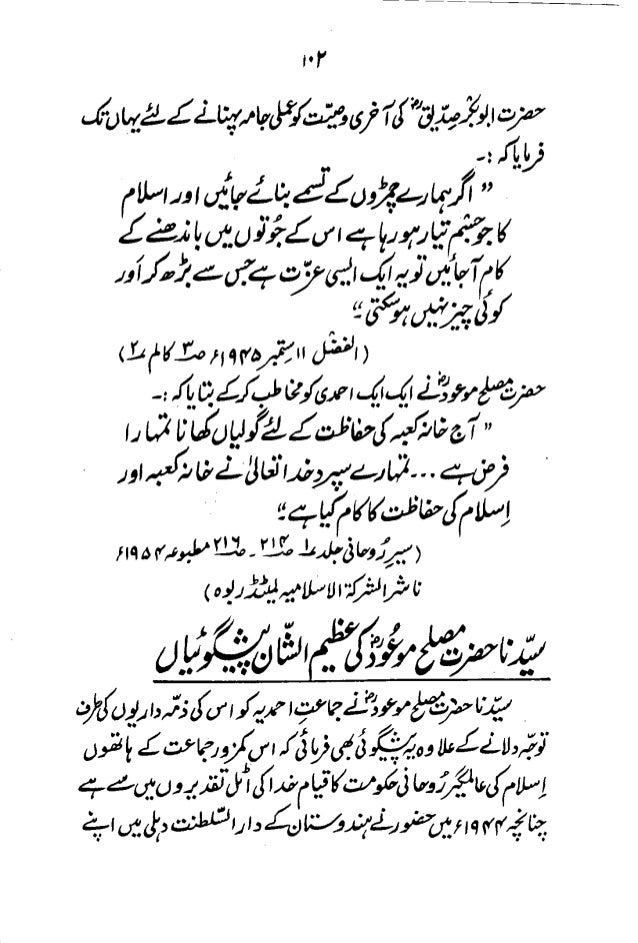 ۱۰۲
حضرت ابوبکر صدیقؓ کی آخری وصیّت کو عملی جامہ پہنانے کے لئے یہاں تک
فرمایا کہ :۔
” اگر ہمارے چمڑوں کے تسمے بنائے جائیں اور اسلام
کا جو جسم تیار ہو رہا ہے اس کے جُوتوں میں باندھنے کے
کام آجائیں تو یہ ایک ایسی عزّت ہے جس سے بڑھ کر اَور
کوئی چیز نہیں ہوسکتی ۔“
(الفضل ۱۱ ستمبر ۱۹۴۵ء صـ۳ کالم ۲)
حضرت مصلح موعودؓ نے ایک ایک احمدی کو مخاطب کرکے بتایا کہ :۔
” آج خانہ کعبہ کی حفاظت کے لئے گولیاں کھانا تمہارا
فرض ہے ... تمہارے سپرد خدا تعالیٰ نے خانہ کعبہ اور
اِسلام کی حفاظت کا کام کیا ہے ۔“
(سیرِ رُوحانی جلد ۱ صـ۲۱۴ ۔ صـ۲۱۶ مطبوعہ ۱۹۵۴ء
ناشر الشرکۃ الاسلامیہ لمیٹڈ ربوہ)
سیّدنا حضرت مصلح موعُودؓ کی عظیم الشّان پیشگوئیاں
سیّدنا حضرت مصلح موعودؓ نے جماعتِ احمدیہ کو اس کی ذمّہ داریوں کی طرف
توجّہ دلانے کے علاوہ یہ پیشگوئی بھی فرمائی کہ اس کمزور جماعت کے ہاتھوں
اِسلام کی عالمگیر رُوحانی حکومت کا قیام خدا کی اٹل تقدیروں میں سے ہے
چنانچہ ۱۹۴۴ء میں حضور نے ہندوستان کے دارالسّلطنت دہلی میں اپنے